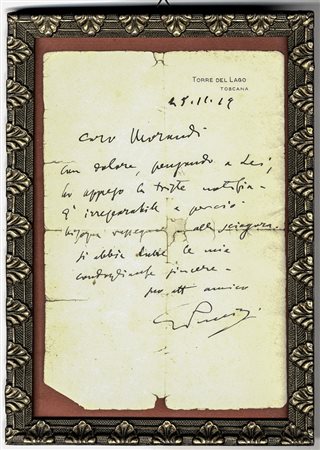 TORRE DEL LAGO
TOSCANA
25.11.19
Caro Morandi
con dolore, pensando a Lei,
ho appreso la triste notizia -
È irreparabile e perciò
bisogna alla sciagura.
Si abbia le mie
condoglianze sincere -
suo aff amico
GPuccini